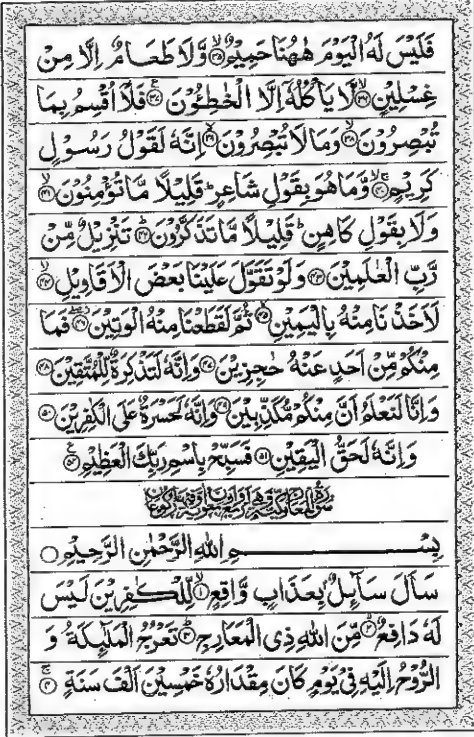 فَلَيْسَ لَهُ الْيَوْمَ هٰهُنَا حَمِيْمٌ ﴿۳۵﴾ وَّلَا طَعَامٌ اِلَّا مِنْ
غِسْلِيْنٍ ﴿۳۶﴾ لَّا يَاْكُلُهٗۤ اِلَّا الْخٰطِـُٔوْنَ ﴿۳۷﴾ فَلَاۤ اُقْسِمُ بِمَا
تُبْصِرُوْنَ ﴿۳۸﴾ وَمَا لَا تُبْصِرُوْنَ ﴿۳۹﴾ اِنَّهٗ لَقَوْلُ رَسُوْلٍ
كَرِيْمٍ ﴿۴۰﴾ وَّمَا هُوَ بِقَوْلِ شَاعِرٍ ؕ قَلِيْلًا مَّا تُؤْمِنُوْنَ ﴿۴۱﴾
وَلَا بِقَوْلِ كَاهِنٍ ؕ قَلِيْلًا مَّا تَذَكَّرُوْنَ ﴿۴۲﴾ تَنْزِيْلٌ مِّنْ
رَّبِّ الْعٰلَمِيْنَ ﴿۴۳﴾ وَلَوْ تَقَوَّلَ عَلَيْنَا بَعْضَ الْاَقَاوِيْلِ ﴿۴۴﴾
لَاَخَذْنَا مِنْهُ بِالْيَمِيْنِ ﴿۴۵﴾ ثُمَّ لَقَطَعْنَا مِنْهُ الْوَتِيْنَ ﴿۴۶﴾ فَمَا
مِنْكُمْ مِّنْ اَحَدٍ عَنْهُ حٰجِزِيْنَ ﴿۴۷﴾ وَاِنَّهٗ لَتَذْكِرَةٌ لِّلْمُتَّقِيْنَ ﴿۴۸﴾
وَاِنَّا لَنَعْلَمُ اَنَّ مِنْكُمْ مُّكَذِّبِيْنَ ﴿۴۹﴾ وَاِنَّهٗ لَحَسْرَةٌ عَلَى الْكٰفِرِيْنَ ﴿۵۰﴾
وَاِنَّهٗ لَحَقُّ الْيَقِيْنِ ﴿۵۱﴾ فَسَبِّحْ بِاسْمِ رَبِّكَ الْعَظِيْمِ ﴿۵۲﴾
بِسْمِ اللّٰهِ الرَّحْمٰنِ الرَّحِيْمِ
سَاَلَ سَآىِٕلٌۢ بِعَذَابٍ وَّاقِعٍ ﴿۱﴾ لِّلْكٰفِرِيْنَ لَيْسَ
لَهٗ دَافِعٌ ﴿۲﴾ مِّنَ اللّٰهِ ذِى الْمَعَارِجِ ﴿۳﴾ تَعْرُجُ الْمَلٰٓىِٕكَةُ وَ
الرُّوْحُ اِلَيْهِ فِىْ يَوْمٍ كَانَ مِقْدَارُهٗ خَمْسِيْنَ اَلْفَ سَنَةٍ ﴿۴﴾